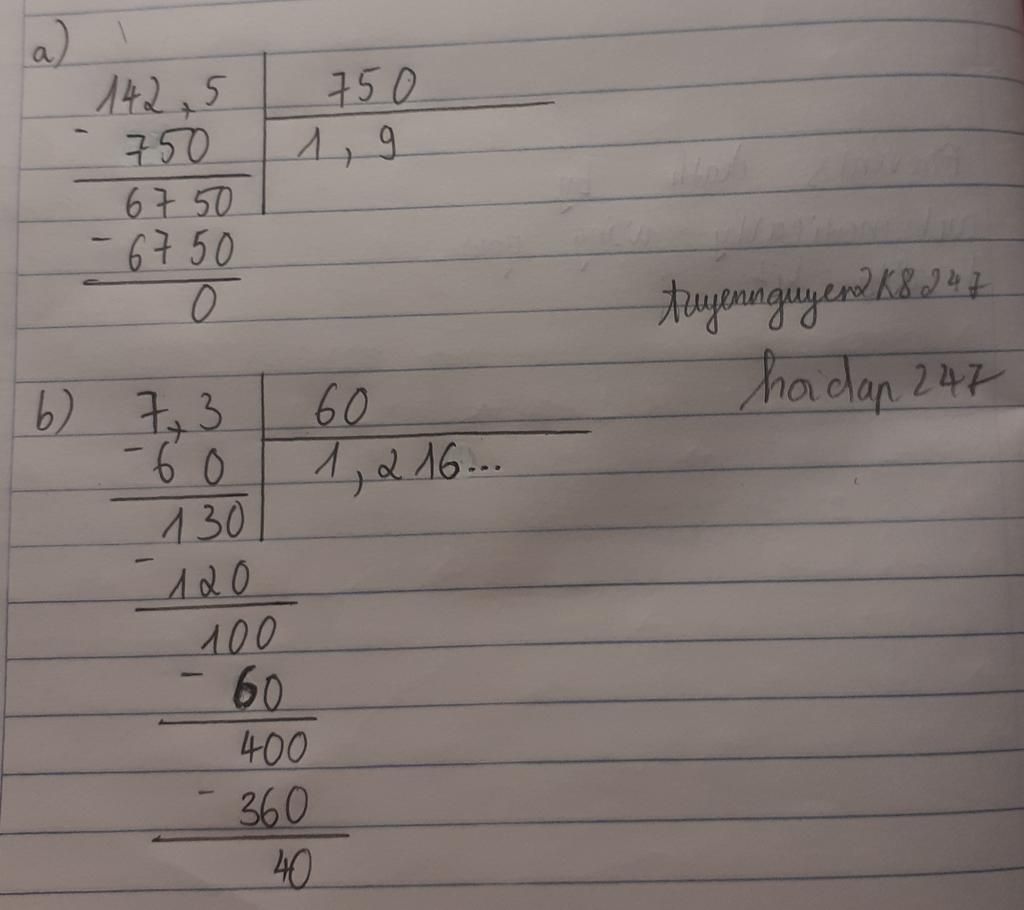 a)
142,5 750
- 750 1,9
6750
- 6750
0
tuyennguyen2K8247
hoidap 247
b) 7,3 60
- 60 1,216...
130
- 120
100
- 60
400
- 360
40